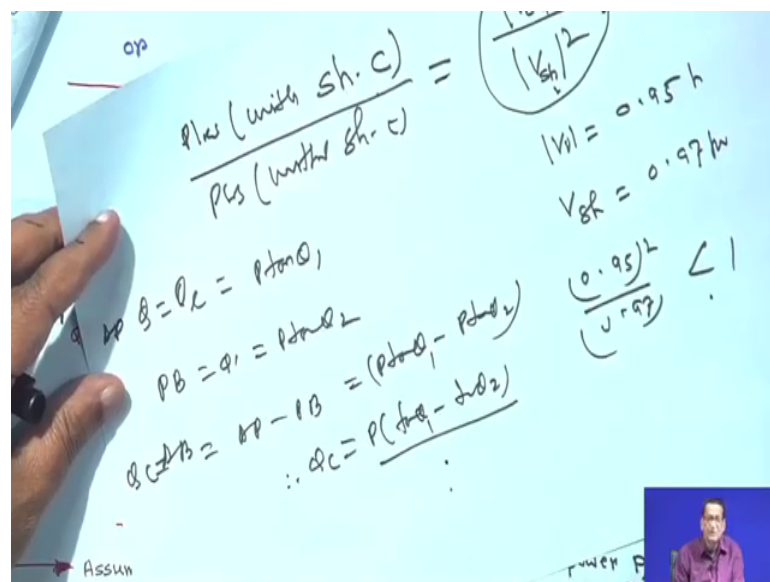 op
Plos (with sh. C) =
|Vsh|²
Plos (without sh. C)
|V0| = 0.95 p
Vsh = 0.97 pu
(0.95)² / (0.97) < 1
AP Q = QL = P tanθ1
PB = Q' = P tanθ2
QC = AB = AP - PB = (P tanθ1 - P tanθ2)
∴ QC = P(tanθ1 - tanθ2)
Assun
power P